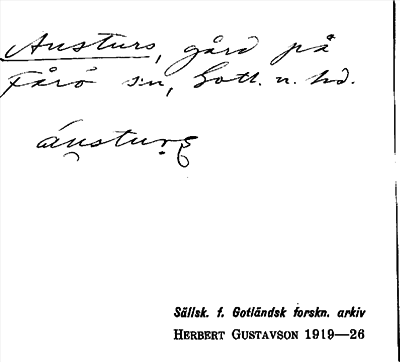 Austurs, gård på
Fårö s:n, Gotl. n. hd.
áustụrs
Sällsk. f. Gotländsk forskn. arkiv
HERBERT GUSTAVSON 1919—26